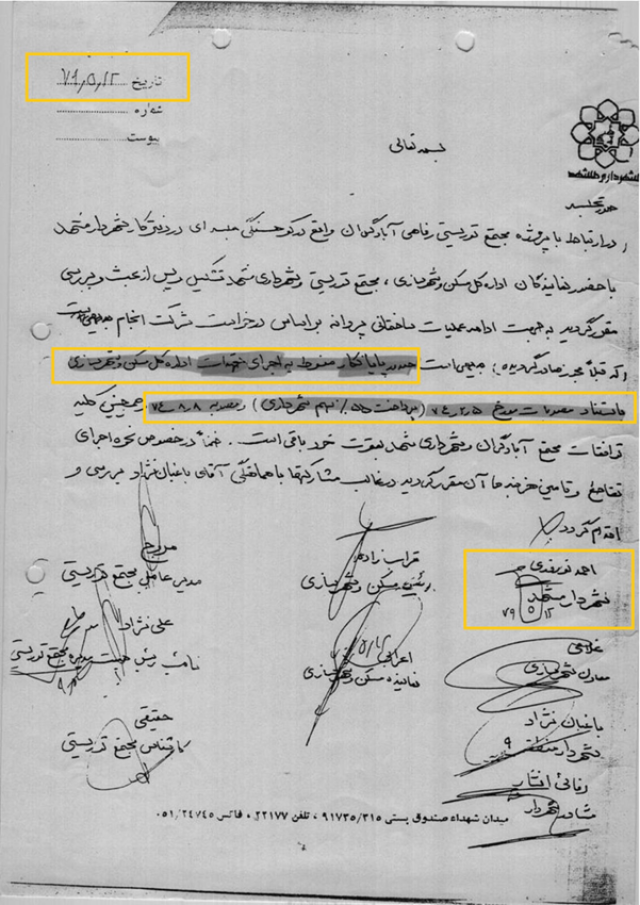 تاریخ ۷۹٫۵٫۱۲
شماره
پیوست
بسمه تعالی
شهرداری مشهد
صورتجلسه
در ارتباط با پروژه مجتمع توریستی رفاهی آبادگران واقع در کوهسنگی جلسه ای در دفتر کار شهردار مشهد
با حضور نمایندگان اداره کل مسکن و شهرسازی ، مجتمع توریستی و شهرداری مشهد تشکیل و پس از بحث و بررسی
مقرر گردید به جهت ادامه عملیات ساختمانی پروانه بر اساس درخواست شرکت انجام
( که قبلاً مجوز صادر گردیده ) بدیهی است صدور پایانکار منوط به اجرای تعهدات اداره کل مسکن و شهرسازی
باستناد مصوبات مورخ ۷۴٫۲٫۵ ( پرداخت ٪ سهم شهرداری ) و مصوبه ۷۴٫۸٫۸ و همچنین کلیه
توافقات مجتمع آبادگران و شهرداری مشهد بقوت خود باقی است . ضمناً در خصوص نحوه اجرای
تقاطع و تامین هزینه ها آن مقرر گردید در قالب مشارکتها با هماهنگی آقای باغبان نژاد بررسی و
اقدام گردد
احمد نوروزی
شهردار مشهد
۷۹ ۵ ۱۲
قراب زاده
رئیس مسکن و شهرسازی
مدیر عامل مجتمع توریستی
غلامی
معاون شهرسازی
اعرابی
نماینده مسکن و شهرسازی
علی نژاد
نائب رئیس هیئت مدیره مجتمع توریستی
باغبان نژاد
شهردار منطقه ۹
حقیقی
کارشناس مجتمع توریستی
مشاور شهردار
میدان شهداء صندوق پستی ۹۱۷۳۵/۳۱۵ ، تلفن ۲۲۱۷۷ ، فاکس ۰۵۱/۲۴۷۴۵